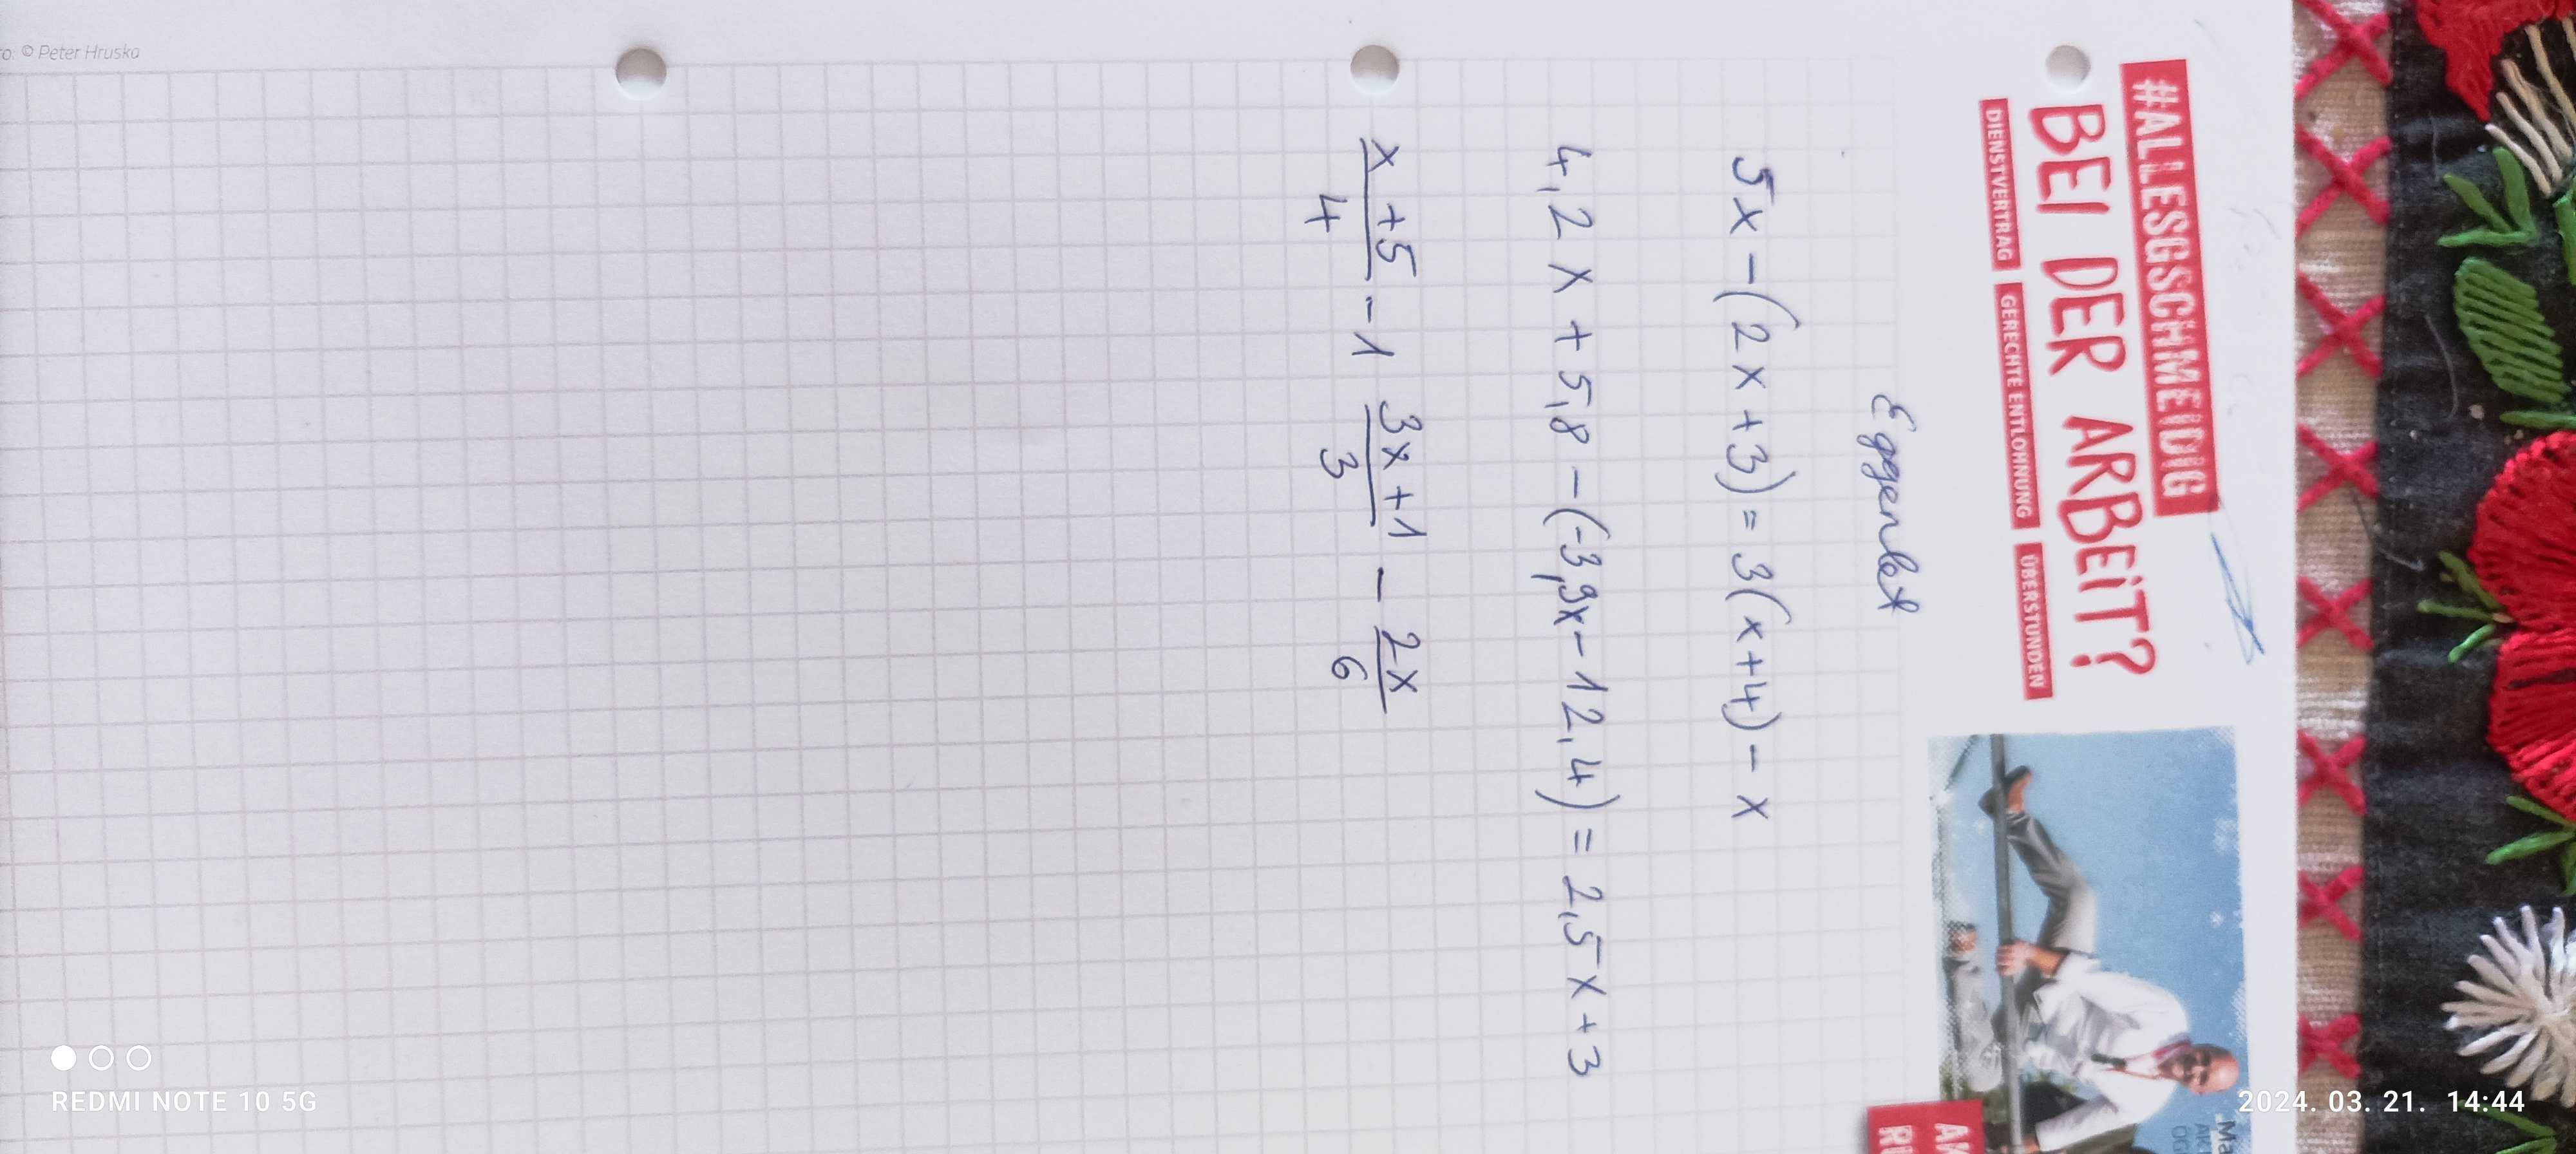 #ALLESGSCHMEIDIG
BEI DER ARBEIT?
DIENSTVERTRAG GERECHTE ENTLOHNUNG ÜBERSTUNDEN
Eggenlet
5x - (2x+3) = 3(x+4) - x
4,2x + 5,8 - (-3,9x - 12,4) = 2,5x + 3
x+5/4 - 1 3x+1/3 - 2x/6
© Peter Hruska
REDMI NOTE 10 5G
2024. 03. 21. 14:44